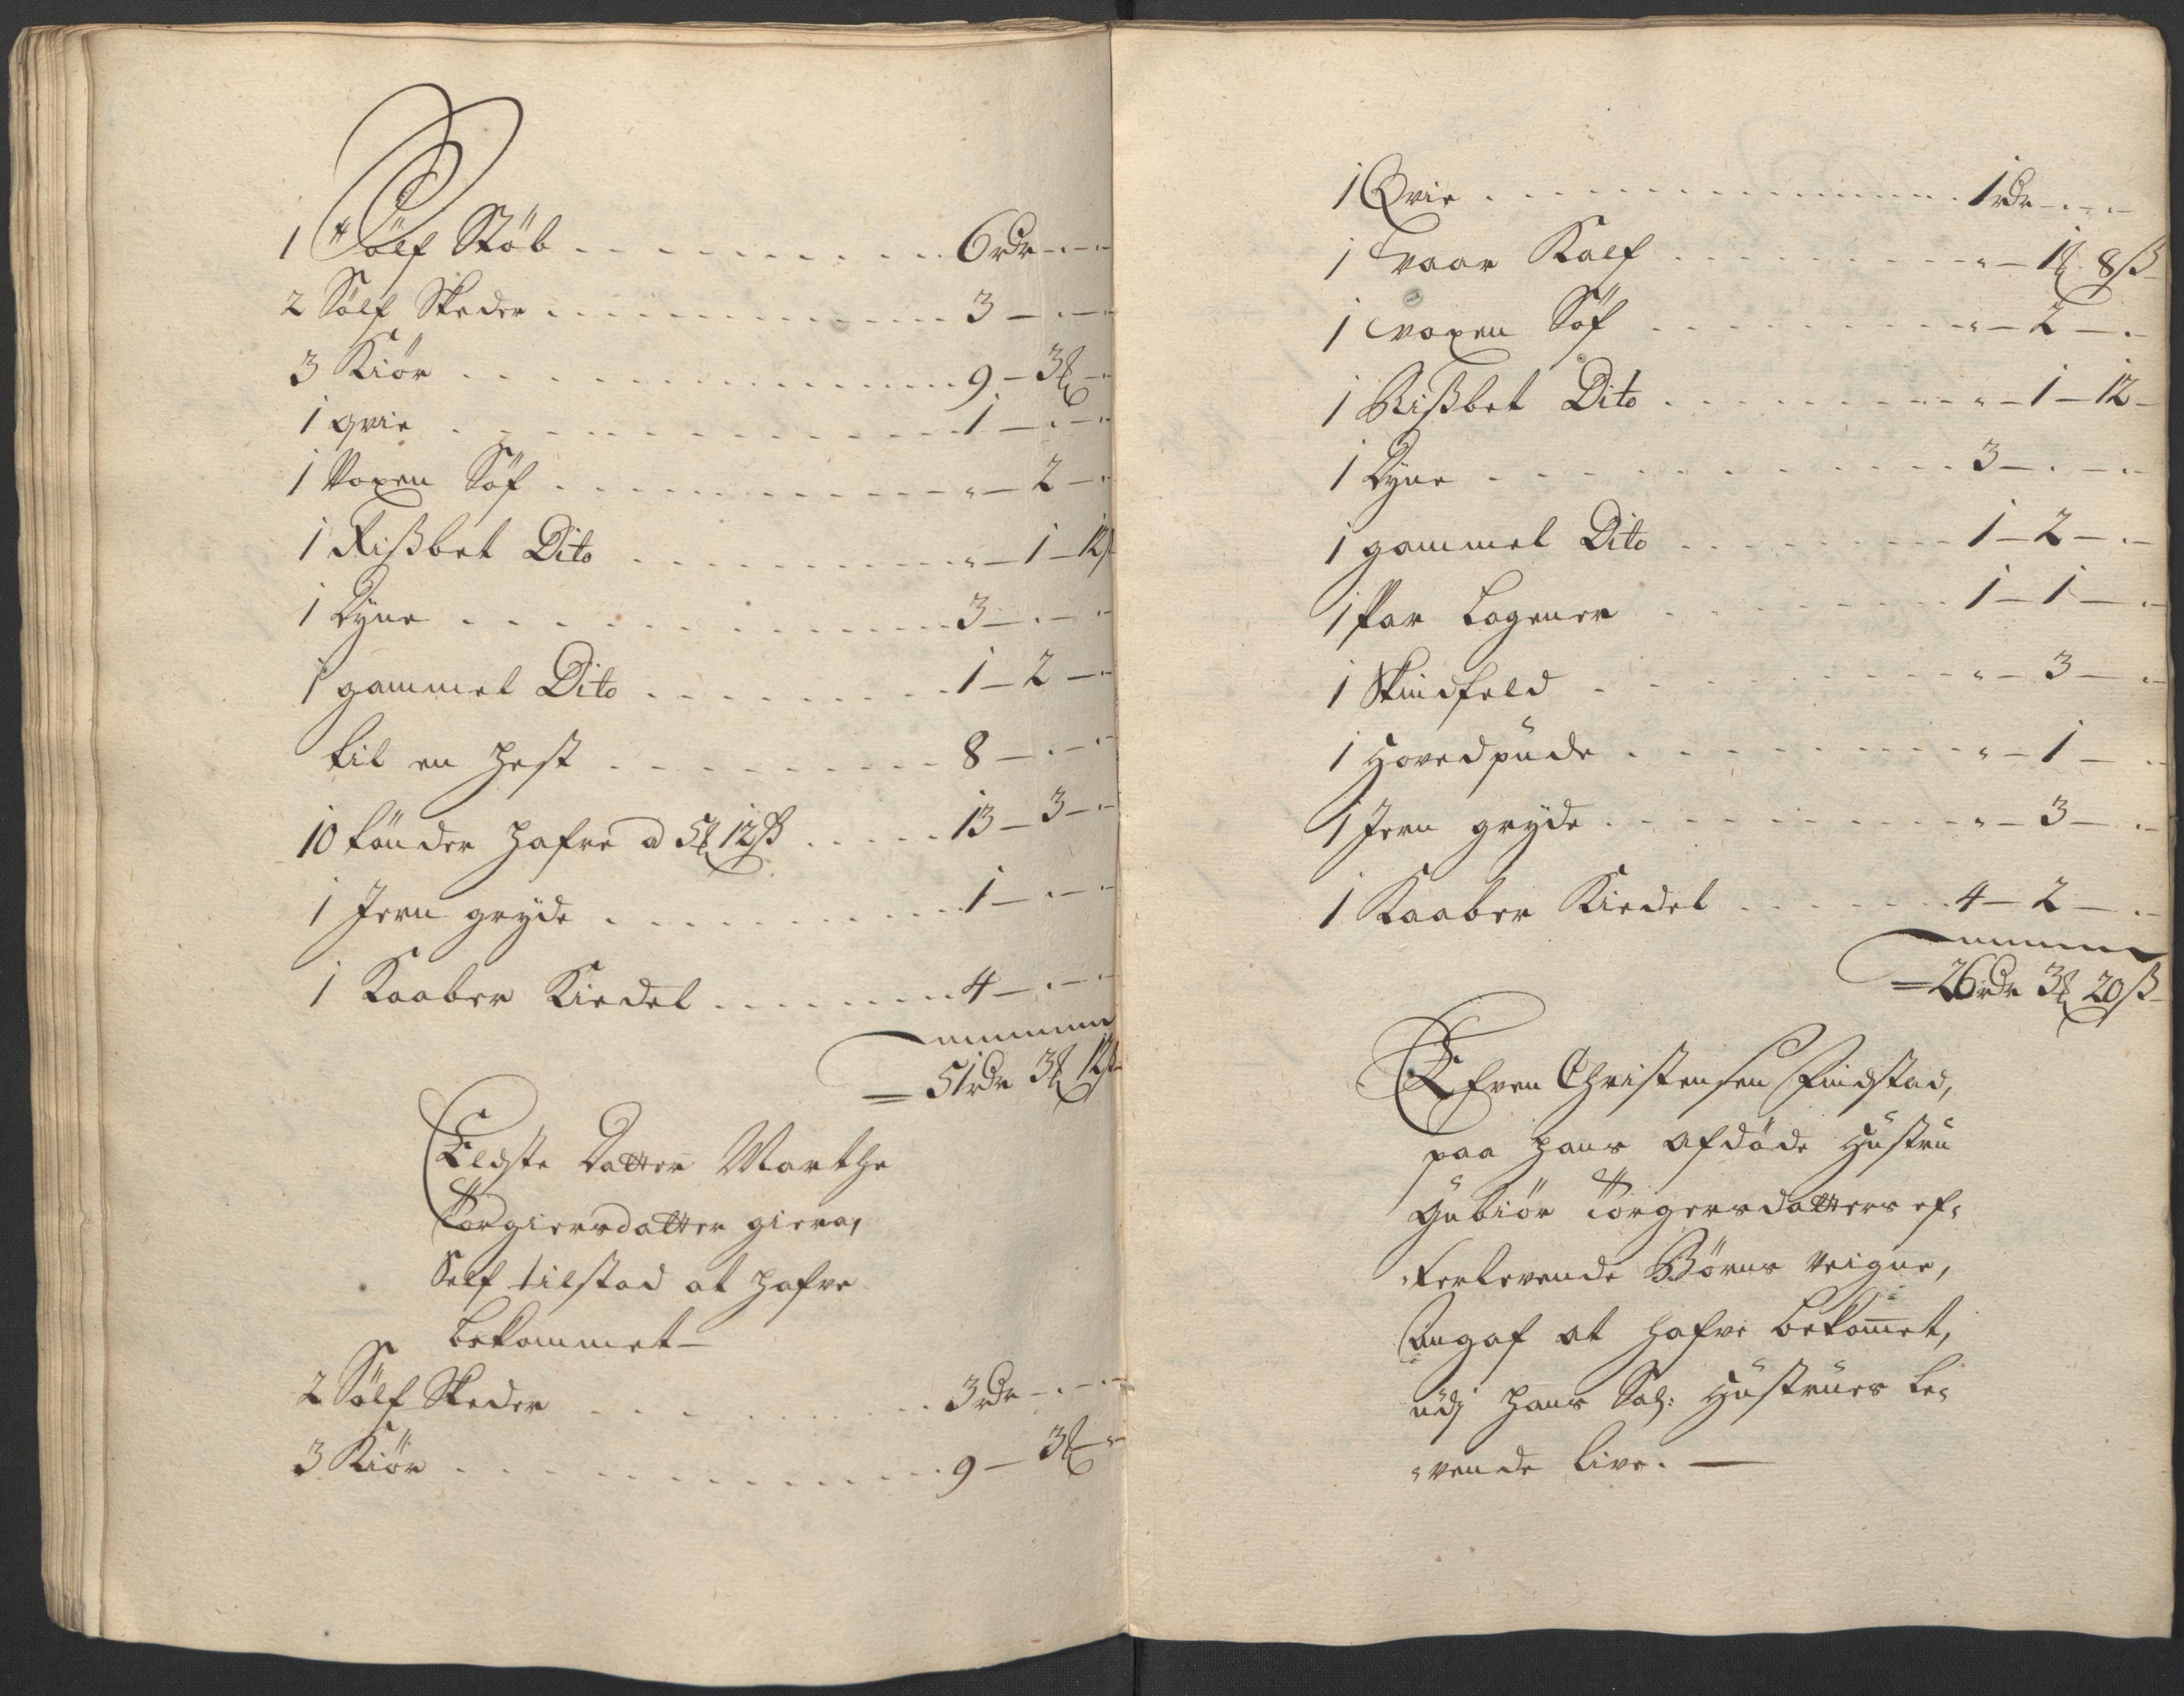 1 Sølf Støb . . . . . . . . . . 6 rdr - . - "
2 Sølf Skeder . . . . . . . . . . 3 - . - "
3 Kiør . . . . . . . . . . 9 - 3 ₰ - "
1 qvie . . . . . . . . . . 1 - . - "
1 Voxen Söf . . . . . . . . . . " - 2 - "
1 Rißbet Dito . . . . . . . . . . " - 1 - 12 ß
1 Dyne . . . . . . . . . . 3 - . - "
1 gammel Dito . . . . . . . . . . 1 - 2 - "
til en hest . . . . . . . . . . 8 - . - "
10 tönder hafre a 5 ₰ 12 ß . . . . . 13 - 3 - "
1 Jern gryde . . . . . . . . . . 1 - . - "
1 Kaaber Kiedel . . . . . . . . 4 - . - "
= 51 rdr 3 ₰ 12 ß
Eldste Datter Marthe
Torgiersdatter giera,
Self tilstod at hafve
bekommet -
2 Sølf Skeder . . . . . . . . . . 3 rdr - . - "
3 Kiör . . . . . . . . . . 9 - 3 ₰ - "
1 Qvie . . . . . . . . . . 1 rdr - . -
1 Vaar Kalf . . . . . . . . . . " - 1 ₰ 8 ß
1 voxen Söf . . . . . . . . . . " - 2 - "
1 Rißbet Dito . . . . . . . . . . " - 1 - 12 -
1 Dyne . . . . . . . . . . 3 - . - "
1 gammel Dito . . . . . . . . . . 1 - 2 - "
1 Par Lagener . . . . . . . . . . 1 - 1 - "
1 Skindfeld . . . . . . . . . . " - 3 - "
1 Hovedpude . . . . . . . . . . " - 1 - "
1 Jern gryde . . . . . . . . . . " - 3 - "
1 Kaaber Kiedel . . . . . . . . 4 - 2 - "
= 26 rdr 3 ₰ 20 ß
Efven Christensen Findstad,
paa hans afdöde Hustru
Gubiör Torgersdatters ef-
terlevende Börns veigne,
Angaf at hafve bekom̅et,
udj hans Sal: Hustrues le-
vende live. —